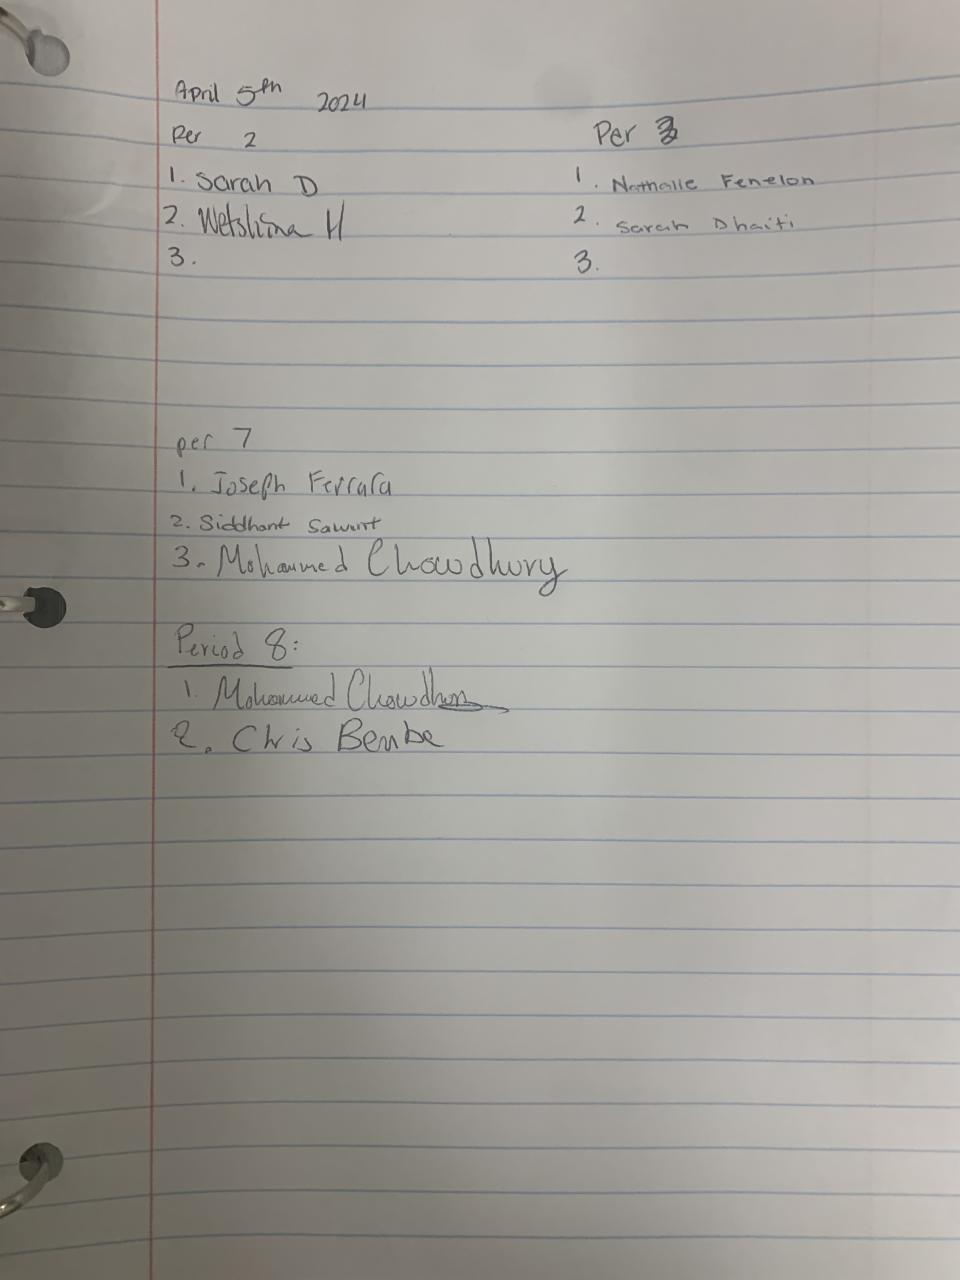 April 5th 2024
Per 2
1. Sarah D
2. Wetshina H
3.
Per 3
1. Nathalie Fenelon
2. Sarah Dhaiti
3.
per 7
1. Joseph Ferrara
2. Siddhant Sawant
3. Mohammed Chowdhury
Period 8:
1. Mohammed Chowdhury
2. Chris Bembe